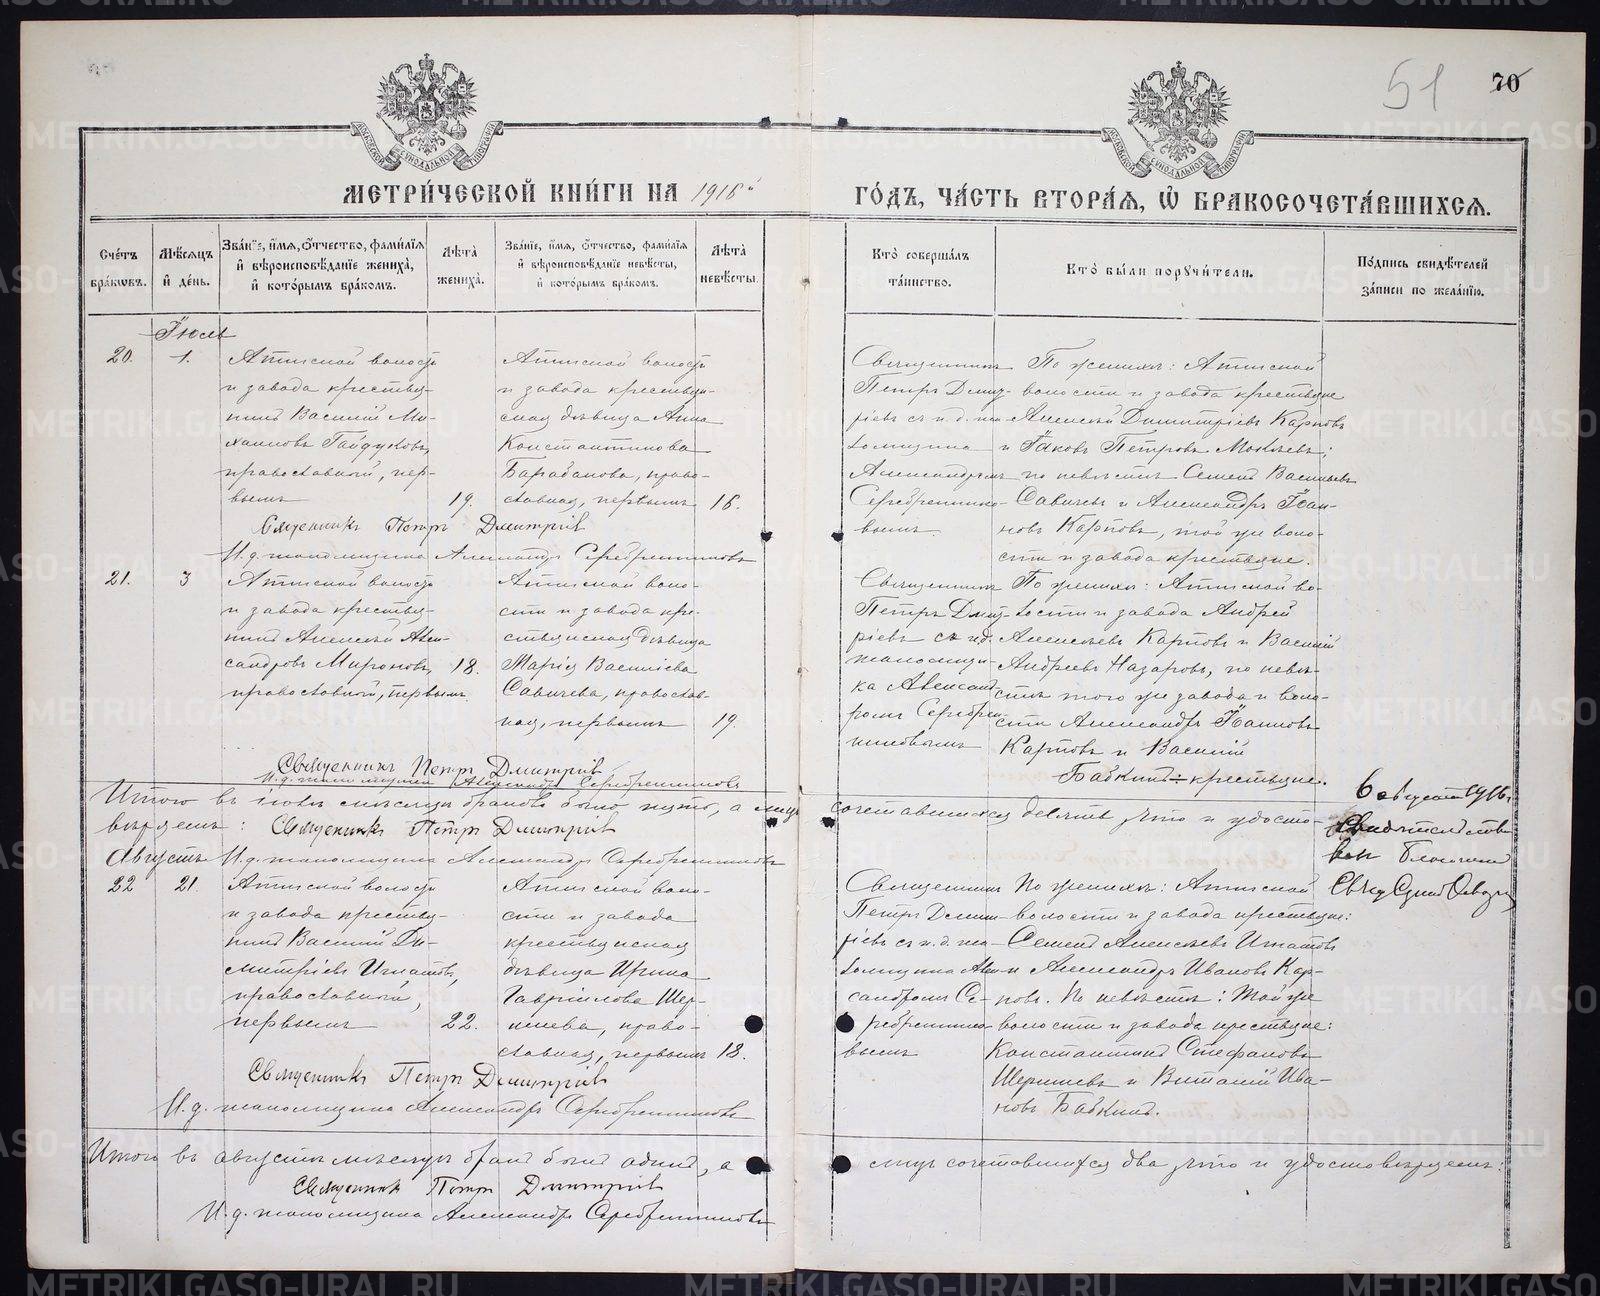 51 70
МЕТРИ́ЧЕСКОЙ КНИ́ГИ НА 1916й
ГО́ДЪ, ЧА́СТЬ ВТОРА́Я, Ѡ҆ БРАКОСОЧЕТА́ВШИХСЯ.
Сче́тъ бра́ковъ.
Мѣ́сяцъ и҆ де́нь.
Зва́нїе, и҆́мя, ѻ҆́тчество, фами́лїя
и҆ вѣроисповѣ́данїе жениха̀,
и҆ кото́рымъ бра́комъ.
Лѣ́та
жениха̀.
Зва́нїе, и҆́мя, ѻ҆́тчество, фами́лїя
и҆ вѣроисповѣ́данїе невѣ́сты,
и҆ кото́рымъ бра́комъ.
Лѣ́та
невѣ́сты.
Кто̀ соверша́лъ
та́инство.
Кто̀ бы́ли порꙋчи́тели.
По́дпись свидѣ́телей
за́писи по жела́нїю.
Іюль
20.
1.
Атигской волости
и завода крестья-
нинъ Василій Ми-
хаиловъ Гайдуковъ,
православный, пер-
вымъ
19.
Атигской волости
и завода крестьян-
ская дѣвица Анна
Константинова
Барабанова, право-
славная, первымъ
16.
Священникъ
Петръ Дмит-
ріевъ съ и. д. пса-
ломщика
Александромъ
Серебренико-
вымъ.
По женихѣ: Атигской
волости и завода крестьяне
Алексѣй Димитріевъ Карповъ
и Іаковъ Петровъ
по невѣстѣ Семенъ Васильевъ
Савичевъ и Александръ Іоан-
новъ Карповъ, той же воло-
сти и завода крестьяне.
Священникъ Петръ Дмитріевъ
И. д. псаломщика Александръ Серебренниковъ
21.
3
Атигской волости
и завода крестья-
нинъ Алексѣй Алек-
сандровъ Мироновъ,
православный, первымъ
18.
Атигской воло-
сти и завода кре-
стьянская дѣвица
Марія Василіева
Савичева, православ-
ная, первымъ
19.
Священникъ
Петръ Дмит-
ріевъ съ и.д.
псаломщи-
ка Александ-
ромъ Серебрен-
никовымъ
По женихѣ: Атигской во-
лости и завода Андрей
Алексѣевъ Карповъ и Василій
Андреевъ Назаровъ, по невѣ-
стѣ того же завода и воло-
сти Александръ Іоанновъ
Карповъ и Василій
Бабкинъ крестьяне.
Священникъ Петръ Дмитріевъ
И. д. псаломщика Александръ Серебренниковъ
Итого въ іюлѣ мѣсяцѣ браковъ было пять, а лицъ сочетавшихся десять что и удосто-
вѣряемъ: Священникъ Петръ Дмитріевъ
И. д. псаломщика Александръ Серебренниковъ
6 августа 1916 г.
Августъ
22
21.
Атигской волости
и завода крестья-
нинъ Василій Ди-
митріевъ Игнатовъ,
православный,
первымъ
22.
Атигской воло-
сти и завода
крестьянская
дѣвица Ирина
Гавріилова Шер-
шнева, право-
славная, первымъ
18.
Священникъ
Петръ Дмит-
ріевъ съ и. д. пса-
ломщика Алек-
сандромъ Се-
ребреннико-
вымъ
По женихѣ: Атигской
волости и завода крестьяне:
Семенъ Алексѣевъ Игнатовъ
и Александръ Ивановъ Кар-
повъ. По невѣстѣ: той же
волости и завода крестьяне:
Константинъ Стефановъ
Шершневъ и Виталій Ива-
новъ Бабкинъ.
Священникъ Петръ Дмитріевъ
И. д. псаломщика Александръ Серебренниковъ
Итого въ августѣ мѣсяцѣ бракъ былъ одинъ, а лицъ сочетавшихся два что и удостовѣряемъ:
Священникъ Петръ Дмитріевъ
И. д. псаломщика Александръ Серебренниковъ
METRIKI.GASO-URAL.RU